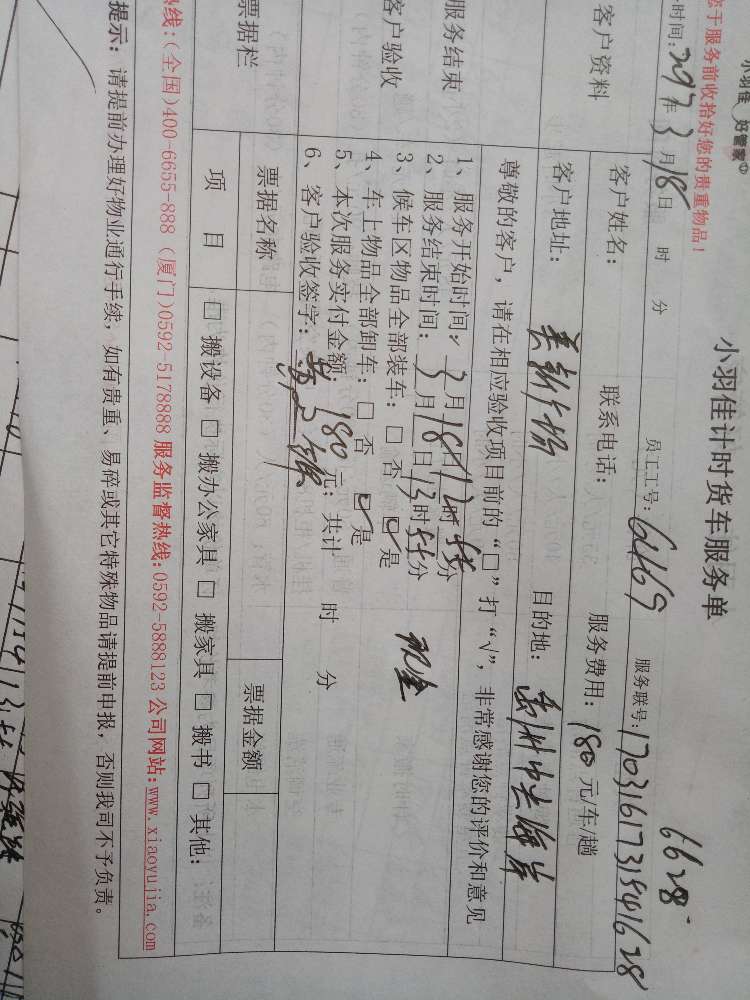 小羽佳 好管家
您于服务前收拾好您的贵重物品!
小羽佳计时货车服务单
时间: 2017年 3月18日 时 分 员工工号: 6469 服务联号: 1703161731541628
6628
客户资料
客户姓名: 联系电话: 服务费用: 180 元/车/趟
客户地址: 目的地: 中央海岸
尊敬的客户，请在相应验收项目前的“□”打“√”，非常感谢您的评价和意见
服务结束
客户验收
1、服务开始时间: 3月18日12时 分
2、服务结束时间: 3月18日13时54分
3、候车区物品全部装车: □ 否 ☑ 是
4、车上物品全部卸车: □ 否 ☑ 是
5、本次服务实付金额: 180 元; 共计 时 分
6、客户验收签字:
票据栏
票据名称 票据金额
项 目 □ 搬设备 □ 搬办公家具 □ 搬家具 □ 搬书 □ 其他:
热线:(全国)400-6655-888 (厦门)0592-5178888 服务监督热线:0592-5888123 公司网站:www.xiaoyujia.com
提示: 请提前办理好物业通行手续，如有贵重、易碎或其它特殊物品请提前申报，否则我司不予负责。